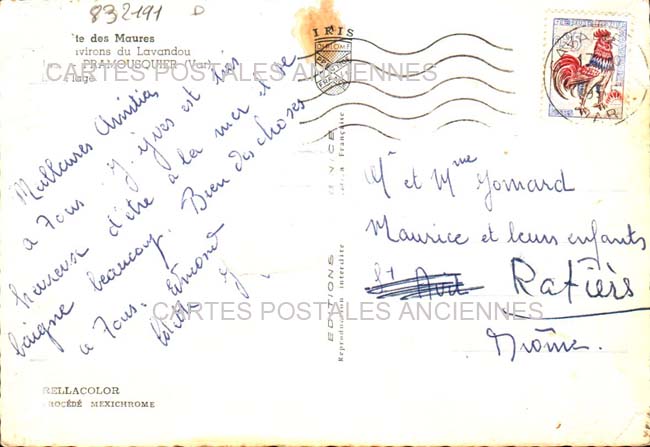 832191 D
te des Maures
nvirons du Lavandou
PRAMOUSQUIER (Var)
lage
IRIS
CARTES POSTALES ANCIENNES
Meilleures Amitiés
à Tous. Yves est très
heureux d'être à la mer et se
baigne beaucoup. Bien des choses
à Tous. Edmond
EDITIONS
NICE
Reproduction interdite
Française
Mr et Mme Gomard
Maurice et leurs enfants
St
Ratières
Drôme.
CARTES POSTALES ANCIENNES
RELLACOLOR
ROCÉDÉ MEXICHROME